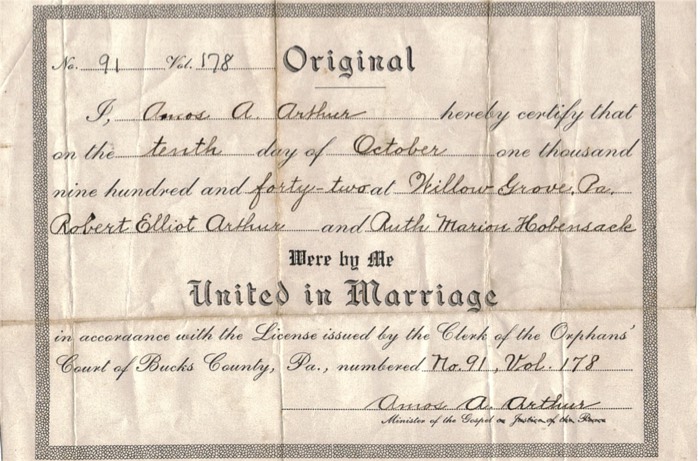 No. 91 Vol. 178 Original
I, Amos A. Arthur hereby certify that
on the tenth day of October one thousand
nine hundred and forty-two at Willow Grove, Pa.
Robert Elliot Arthur and Ruth Marion Hobensack
Were by Me
United in Marriage
in accordance with the License issued by the Clerk of the Orphans'
Court of Bucks County, Pa., numbered No. 91, Vol. 178
Amos A. Arthur
Minister of the Gospel or Justice of the Peace